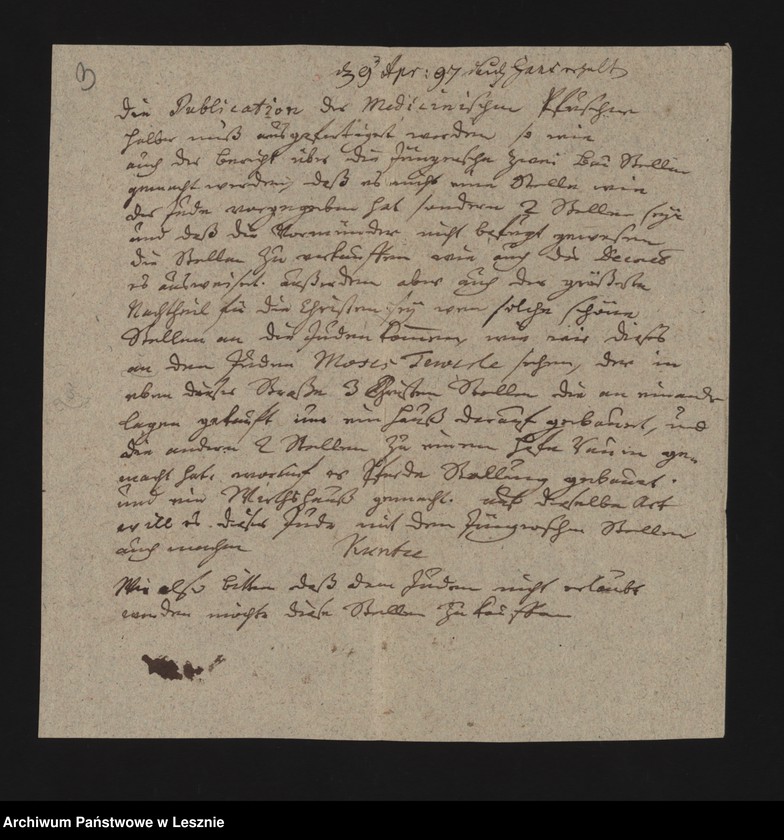 3
d 9 Apr: 97
Die Publication der Medicinischen Pfuscher
halber muß ausgefertiget werden so wie
auch der Bericht über die Jüngersche zwei Bau Stellen
gemacht werden, daß es nicht eine Stelle wie
der Jude vorgegeben hat sondern 2 Stellen sey
und daß die Vormünder nicht befugt gewesen
die Stellen zu verkauffen wie auch die
es ausweiset. außerdem aber auch der größeste
Nachtheil für die Christen sey wen solche schöne
Stellen an die Juden kommen, wie wir dieses
an dem Juden Moses sehen, der in
eben dieser Straße 3 Christen Stellen die an einander
lagen gekauft und ein Hauß darauf gebauet, und
die andern 2 Stellen zu einem Hofe Raum ge=
macht hat, worauf er Pferde Stallung gebauet.
und ein Wirthshauß gemacht. auf dieselbe Art
will es dieser Jude mit den Jüngerschen Stellen
auch machen Kuntze
Wir also bitten daß dem Juden nicht erlaubt
werden möchte diese Stellen zu kauffen
Archiwum Państwowe w Lesznie